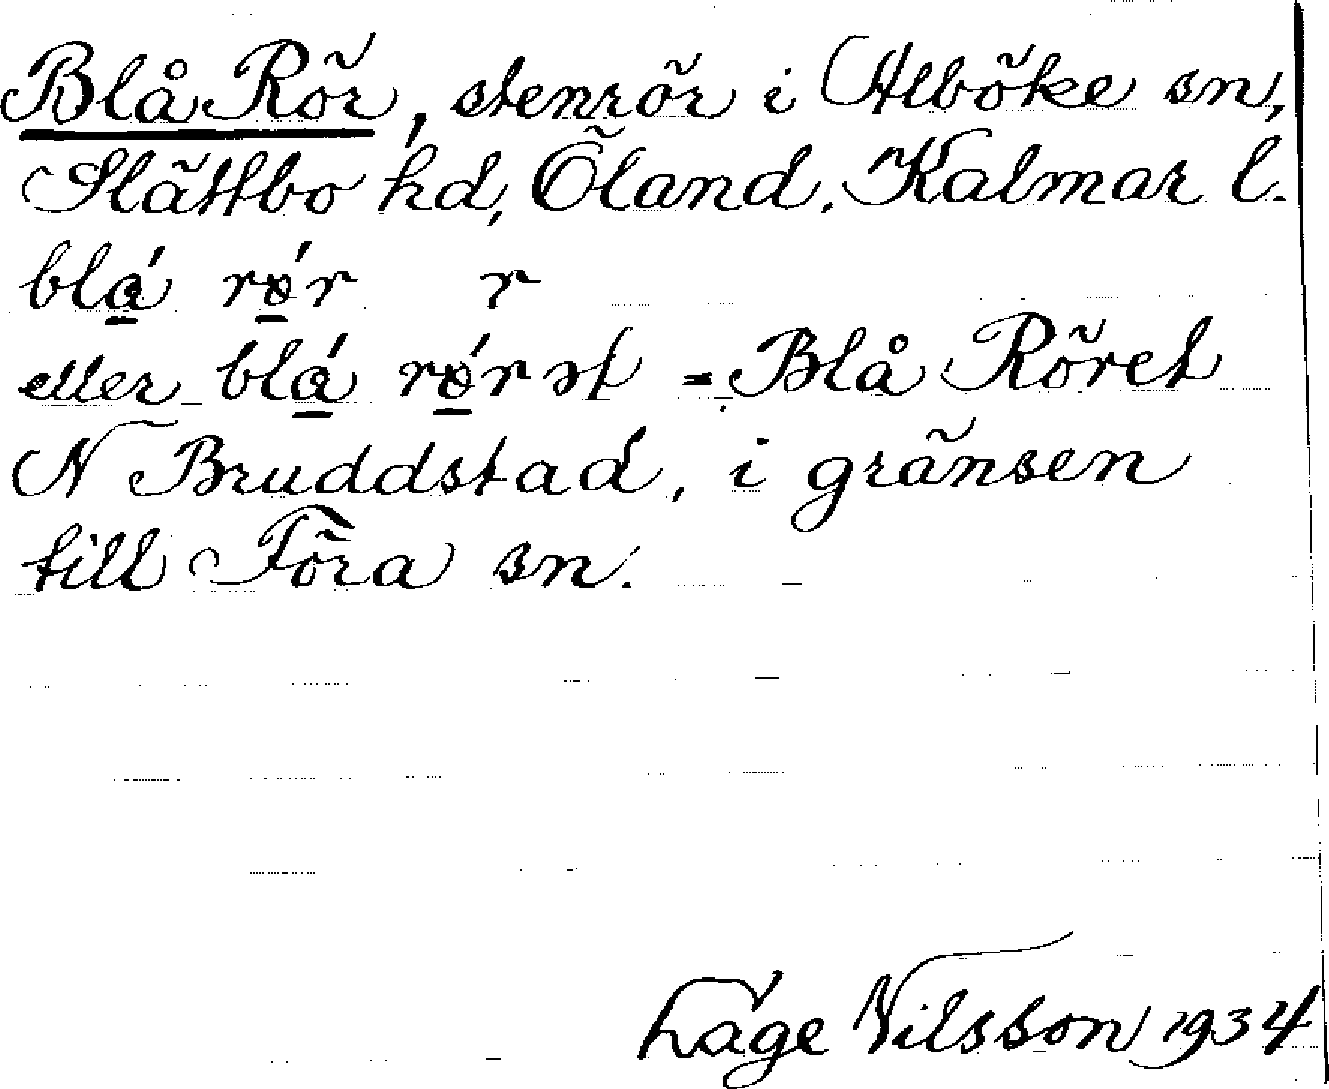 Blå Rör, stenrör i Alböke sn,
Slättbo hd, Öland, Kalmar l.
blɑ́ rǿr r
eller blɑ́ rǿrət = Blå Röret
N Bruddstad, i gränsen
till Föra sn.
Låge Nilsson 1934